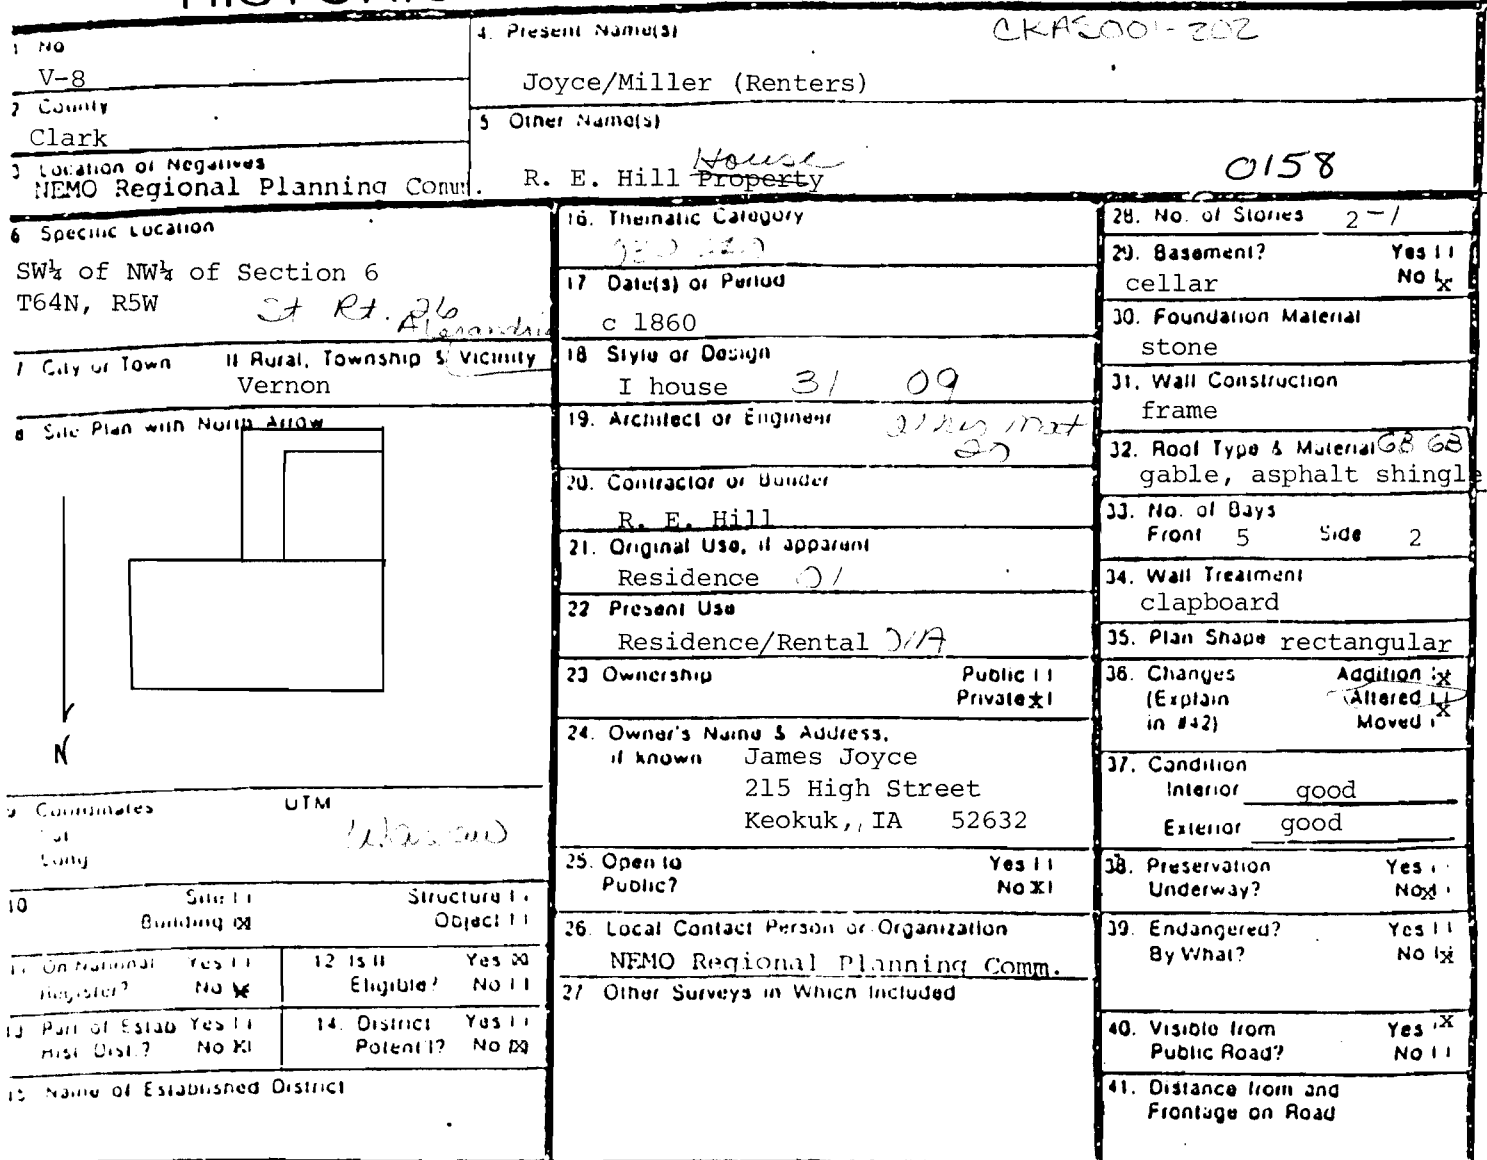 1 No
V-8
2 County
Clark
3 Location of Negatives
NEMO Regional Planning Comm.
4. Present Name(s)
CKAS001-202
Joyce/Miller (Renters)
5 Other Name(s)
R. E. Hill Property House
0158
6 Specific Location
SW¼ of NW¼ of Section 6
T64N, R5W
St Rt. 26
Alexandria
7 City or Town If Rural, Township & Vicinity
Vernon
8 Site Plan with North Arrow
N
9 Coordinates UTM
Lat
Long
Warsaw
10 Site Structure
Building X Object
11 On National Register? Yes No X
12 Is it Eligible? Yes X No
13 Part of Estab Hist. Dist.? Yes No X
14. District Potent'l? Yes No X
15 Name of Established District
16. Thematic Category
17 Date(s) or Period
c 1860
18 Style or Design
I house 31 09
19. Architect or Engineer
20. Contractor or Builder
R. E. Hill
21. Original Use, if apparent
Residence 01
22 Present Use
Residence/Rental 01A
23 Ownership Public
Private x
24. Owner's Name & Address,
if known James Joyce
215 High Street
Keokuk, IA 52632
25. Open to Yes
Public? No X
26. Local Contact Person or Organization
NEMO Regional Planning Comm.
27 Other Surveys in Which Included
28. No. of Stories 2-1
29. Basement? Yes
cellar No x
30. Foundation Material
stone
31. Wall Construction
frame
32. Roof Type & Material GB GB
gable, asphalt shingle
33. No. of Bays
Front 5 Side 2
34. Wall Treatment
clapboard
35. Plan Shape rectangular
36. Changes Addition x
(Explain Altered x
in #42) Moved
37. Condition
Interior good
Exterior good
38. Preservation Yes
Underway? No x
39. Endangered? Yes
By What? No x
40. Visible from Yes x
Public Road? No
41. Distance from and
Frontage on Road